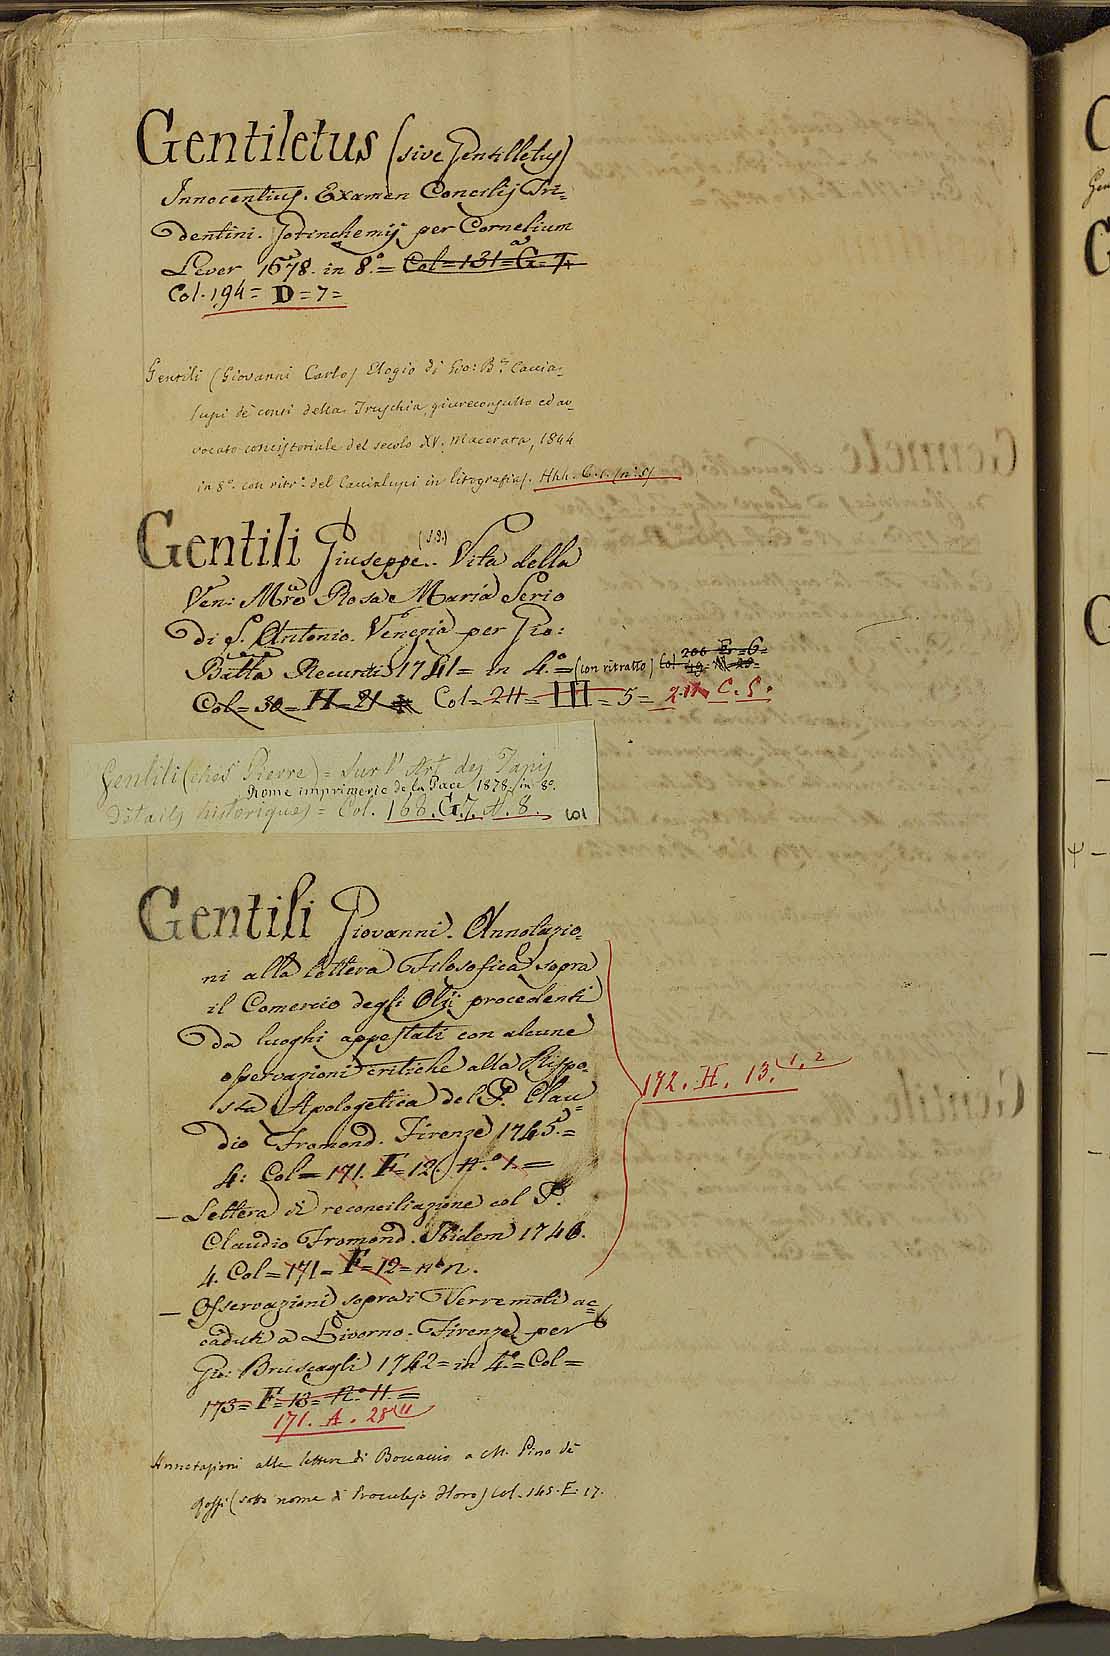 Gentiletus (sive Gentilletus)
Innocentius. Examen Concilij Tri=
dentini. Gorinchemij per Cornelium
Lever 1678. in 8.º = Col = 131 = G = 7.
Col. 194 = D = 7 =
Gentili (Giovanni Carlo) Elogio di Gio: B.ª Caccia=
lupi de' conti della Truschia, giureconsulto ed av=
vocato concistoriale del secolo XV. Macerata, 1844
in 8º. con ritr.º del Caccialupi in litografia. Hhh. C. 1. (nº 5)
Gentili Giuseppe. (S.J.) Vita della
Ven: M.re Rosa Maria Serio
di S. Antonio. Venezia per Gio:
Batta Recurti 1741 = in 4.º = (con ritratto) Col
Col = 30 = H = 21 Col = 24 = III = 5 = 2.11. C. 5.
Gentili (chev. Pierre) = Sur l'Art des Tapis
Rome imprimerie de la Paix 1878. in 8º.
Détails historiques = Col. 168. G. 7. n. 8.
Gentili Giovanni. Annotazio=
ni alla lettera Filosofica sopra
il Comercio degli Olij procedenti
da luoghi appestati con alcune
osservazioni critiche alla Rispo=
sta Apologetica del P. Clau=
dio Fromond. Firenze 1745. =
4: Col = 171. F = 12. n.º 1. =
172. H. 13. 1, 2
— Lettera di reconciliazione col P.
Claudio Fromond. Ibidem 1746.
4. Col = 171 = F = 12 = nº
— Osservazioni sopra i Terremoti ac=
caduti a Livorno. Firenze per
Gio: Bruscagli 1742 = in 4.º = Col =
173 = F = 13 = n.º 11. =
171. A. 28 11
Annotazioni alla lettera di Boccaccio a M. Pino de'
Rossi (sotto nome di Proculejo Floro) Col. 145. E. 17.